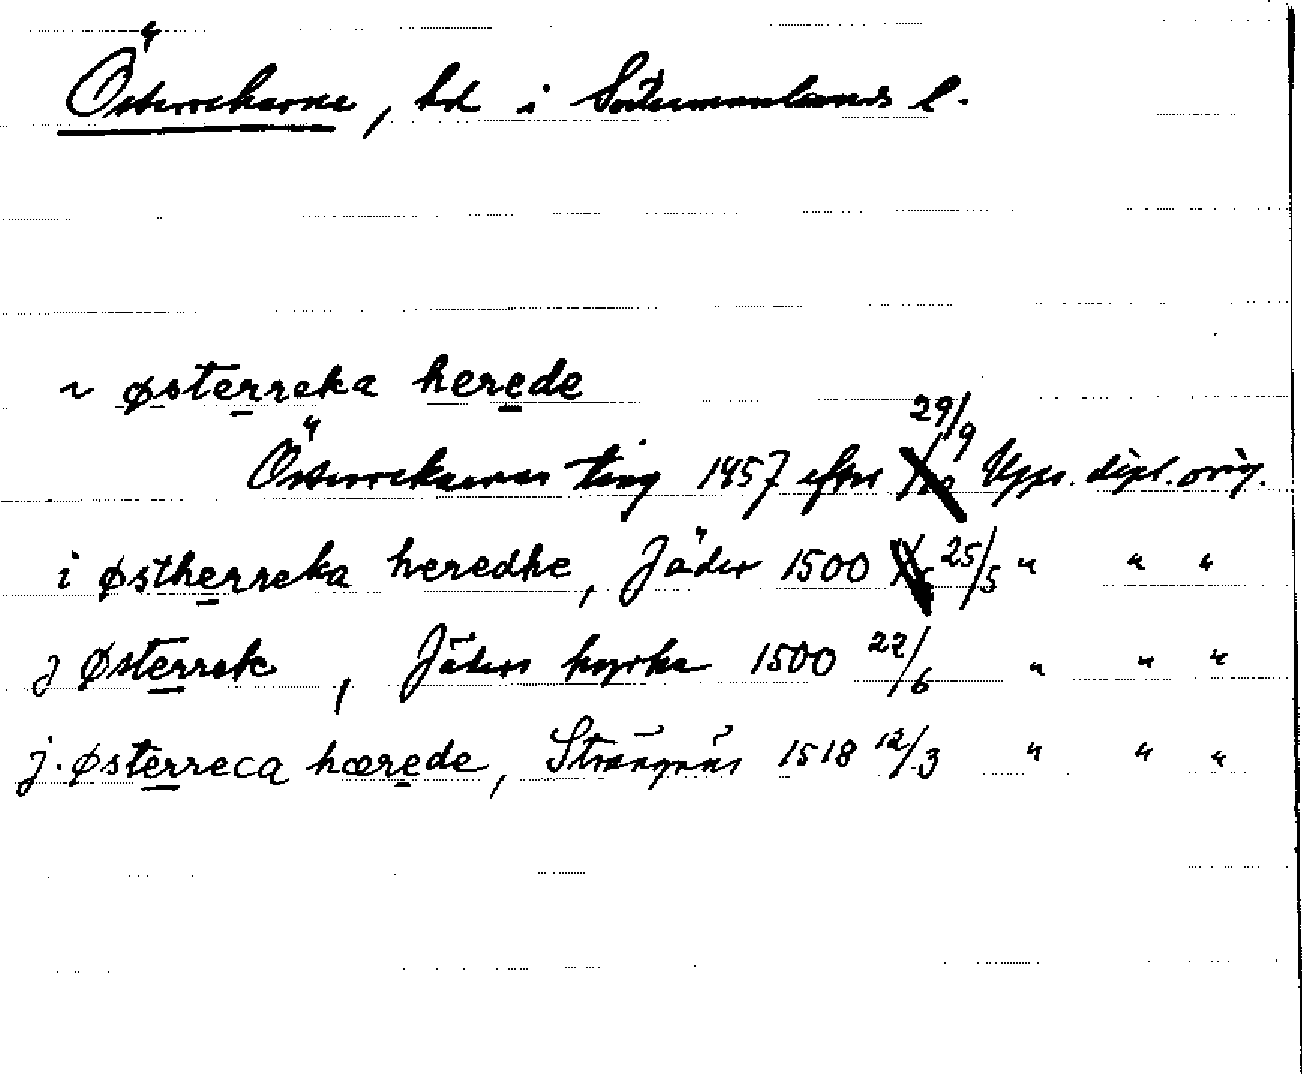 Österrekarne, hd i Södermanlands l.
~ østerreka herede
Österrekarnes ting 1457 efter 29/9 Upps. dipl. orig.
i østherreka heredhe, Jäder 1500 25/5 " " "
j Østerrek, Jäders kyrka 1500 22/6 " " "
j. østerreca hærede, Strängnäs 1518 12/3 " " "